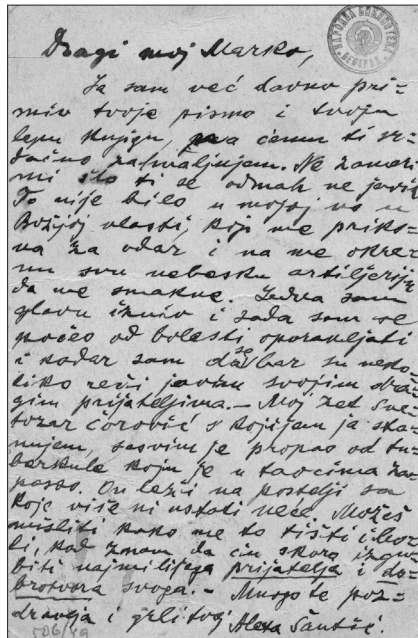 НАРОДНА БИБЛИОТЕКА
БЕОГРАД
Dragi moj Marko,
Ja sam već davno pri-
mio tvoje pismo i tvoju
lepu knjigu, na čemu ti sr-
dačno zahvaljujem. Ne zameri
mi što ti se odmah ne javih
To nije bilo u mojoj no u
Božijoj vlasti, koji me priko-
va za odar i na me okrenu
svu nebesku artiljeriju
da me smakne. Jedva sam
glavu izneo i sada sam se
počeo od bolesti oporavljati
i kadar sam da se bar sa neko-
liko reči javim svojim dra-
gim prijateljima. — Moj zet Sve-
tozar Ćorović s kojijem ja sta-
nujem, sasvim je propao od tu-
berkule koju je u taocima za-
pasao. On leži na postelji sa
koje više ni ustati neće. Možeš
misliti kako me to tišti i bo-
li, kad znam da ću skoro izgu-
biti najmilijega prijatelja i do-
brotvora svoga. — Mnogo te poz-
dravlja i grli tvoj Aleksa Šantić.
106/49